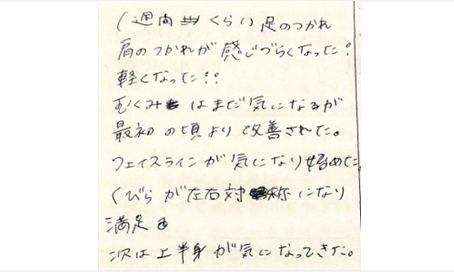 1週間くらい足のつかれ
肩のつかれが感じづらくなった!
軽くなった!!
むくみはまだ気になるが
最初の頃より改善された。
フェイスラインが気になり始めた
くびらが左右対称になり
満足
次は上半身が気になってきた。